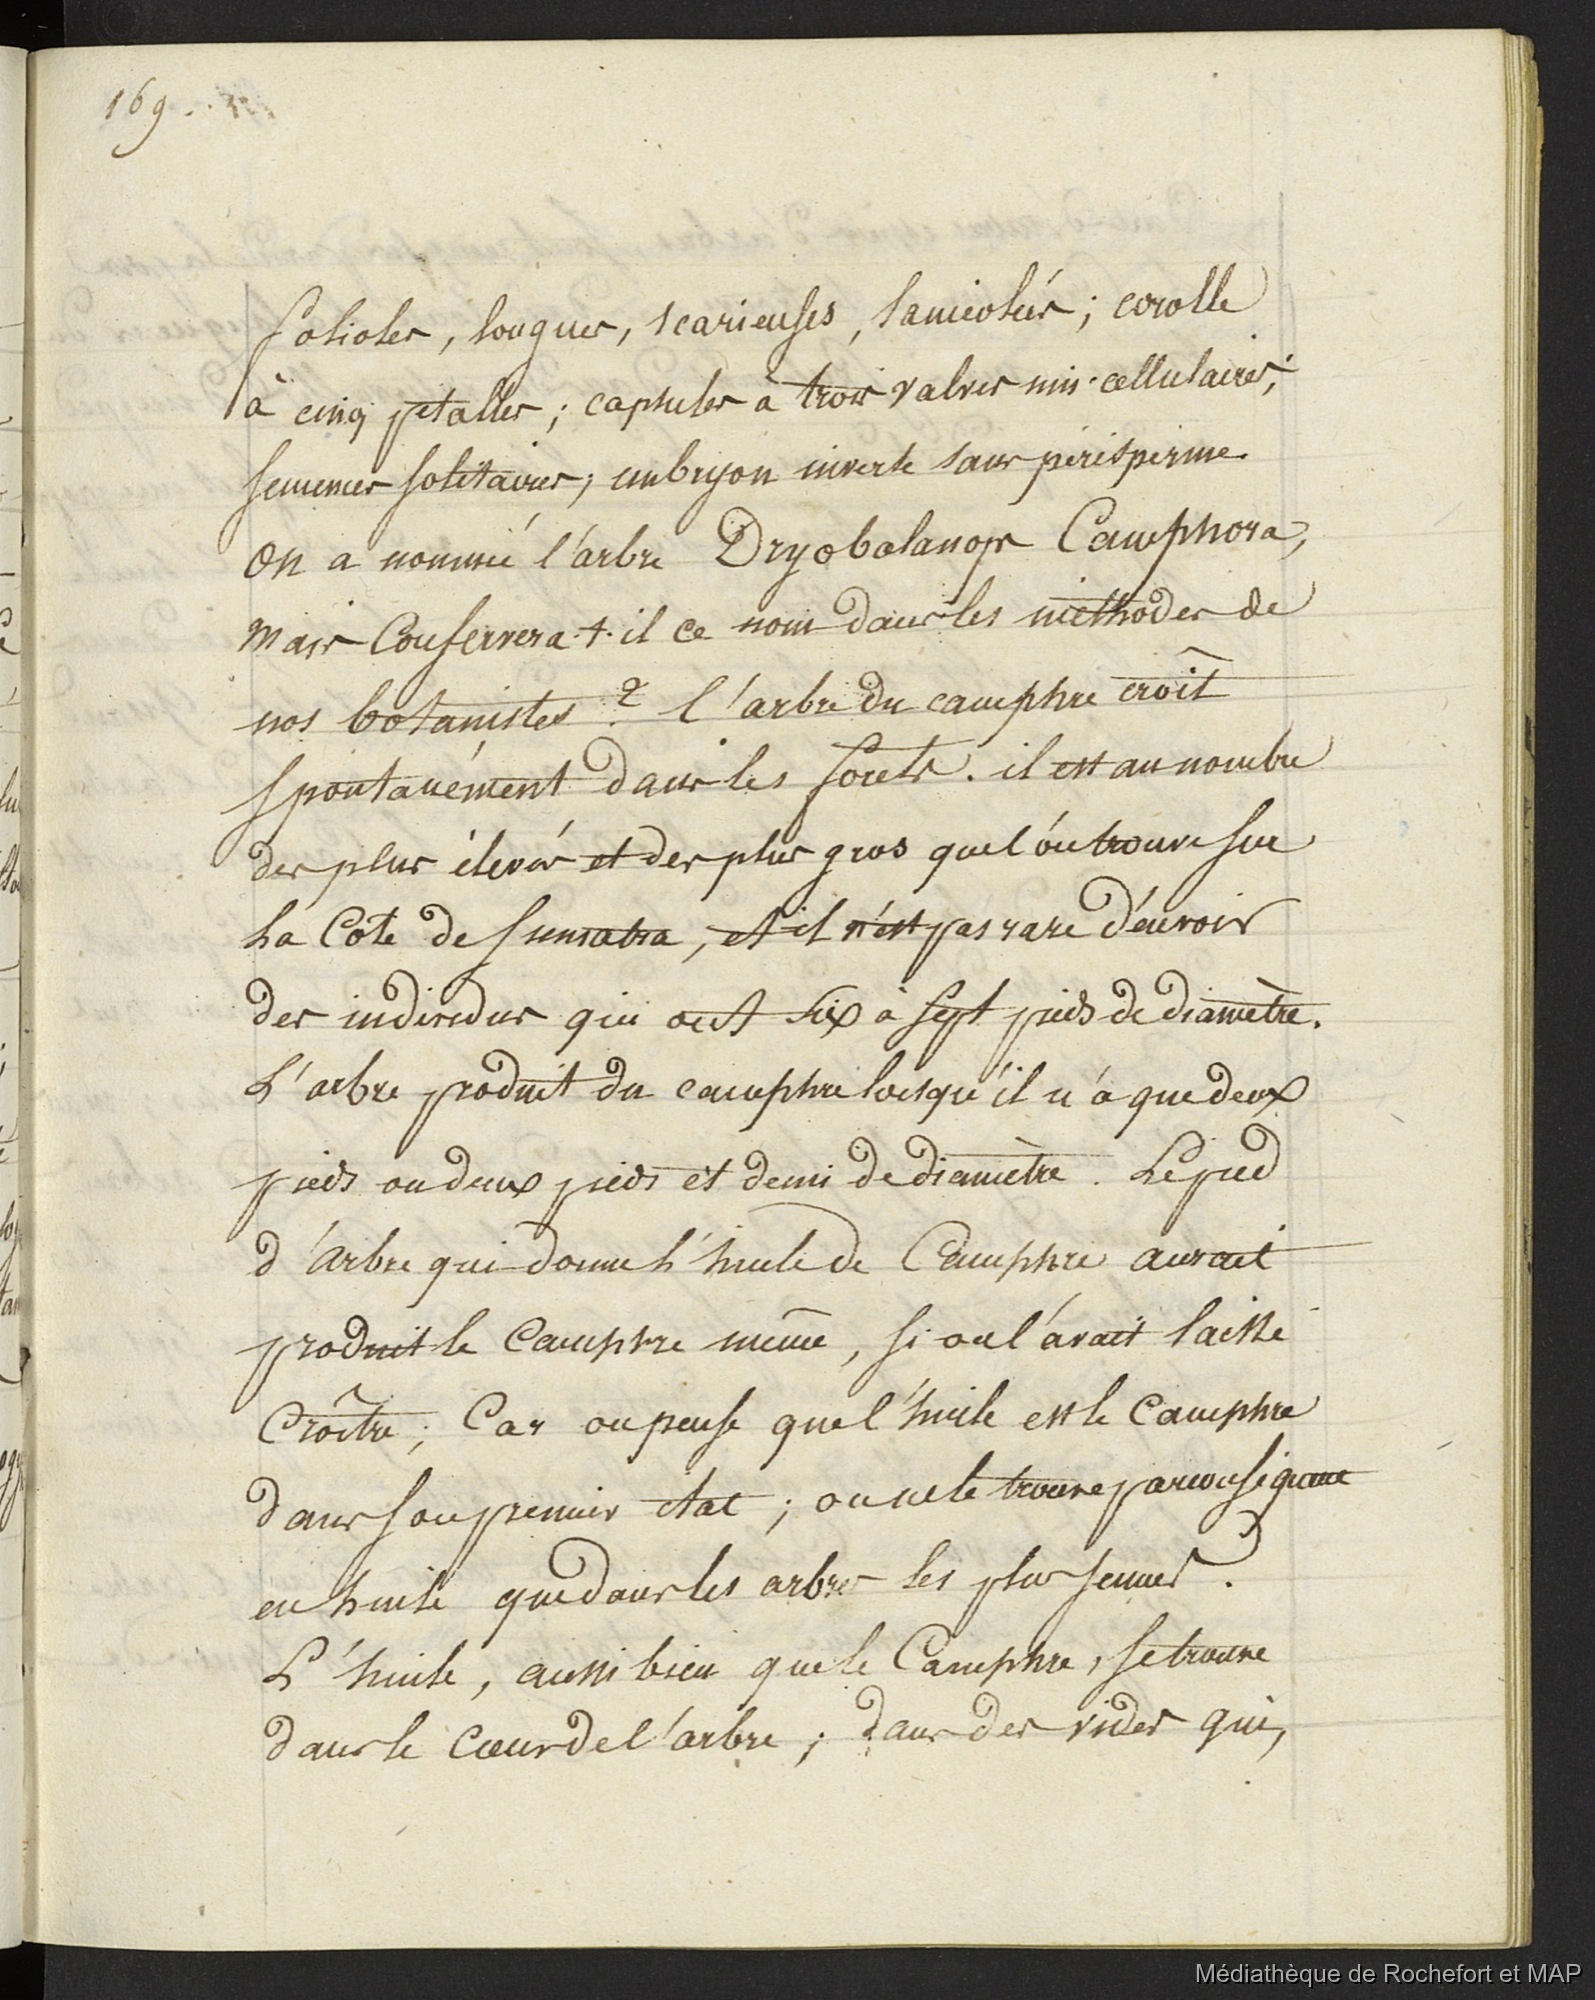 169.
folioles, longues, scarieuses, lanceolées; corolle
à cinq petalles; capsules à trois valves uni-cellulaires;
semences solitaires; embryon inverse sans périsperme.
On a nommé l'arbre Dryobalanops Camphora,
mais Conservera-t-il ce nom dans les méthodes de
nos botanistes? l'arbre du camphre croît
spontanément dans les forets. il est au nombre
des plus élevés et des plus gros que l'on trouve sur
la Côte de Sumatra, et il n'est pas rare d'en voir
des individus qui ont six à sept pieds de diamètre.
L'arbre produit du camphre lorsqu'il n'a que deux
pieds ou deux pieds et demi de diamètre. Le pied
d'arbre qui donne l'huile de Camphre aurait
produit le Camphre même, si on l'avait laissé
Croître; Car on pense que l'huile est le Camphre
dans son premier état; on ne le trouve par conséquent
en huile que dans les arbres les plus jeunes.
L'huile, aussi bien que le Camphre, se trouve
dans le cœur de l'arbre; dans des vides qui,
Médiathèque de Rochefort et MAP